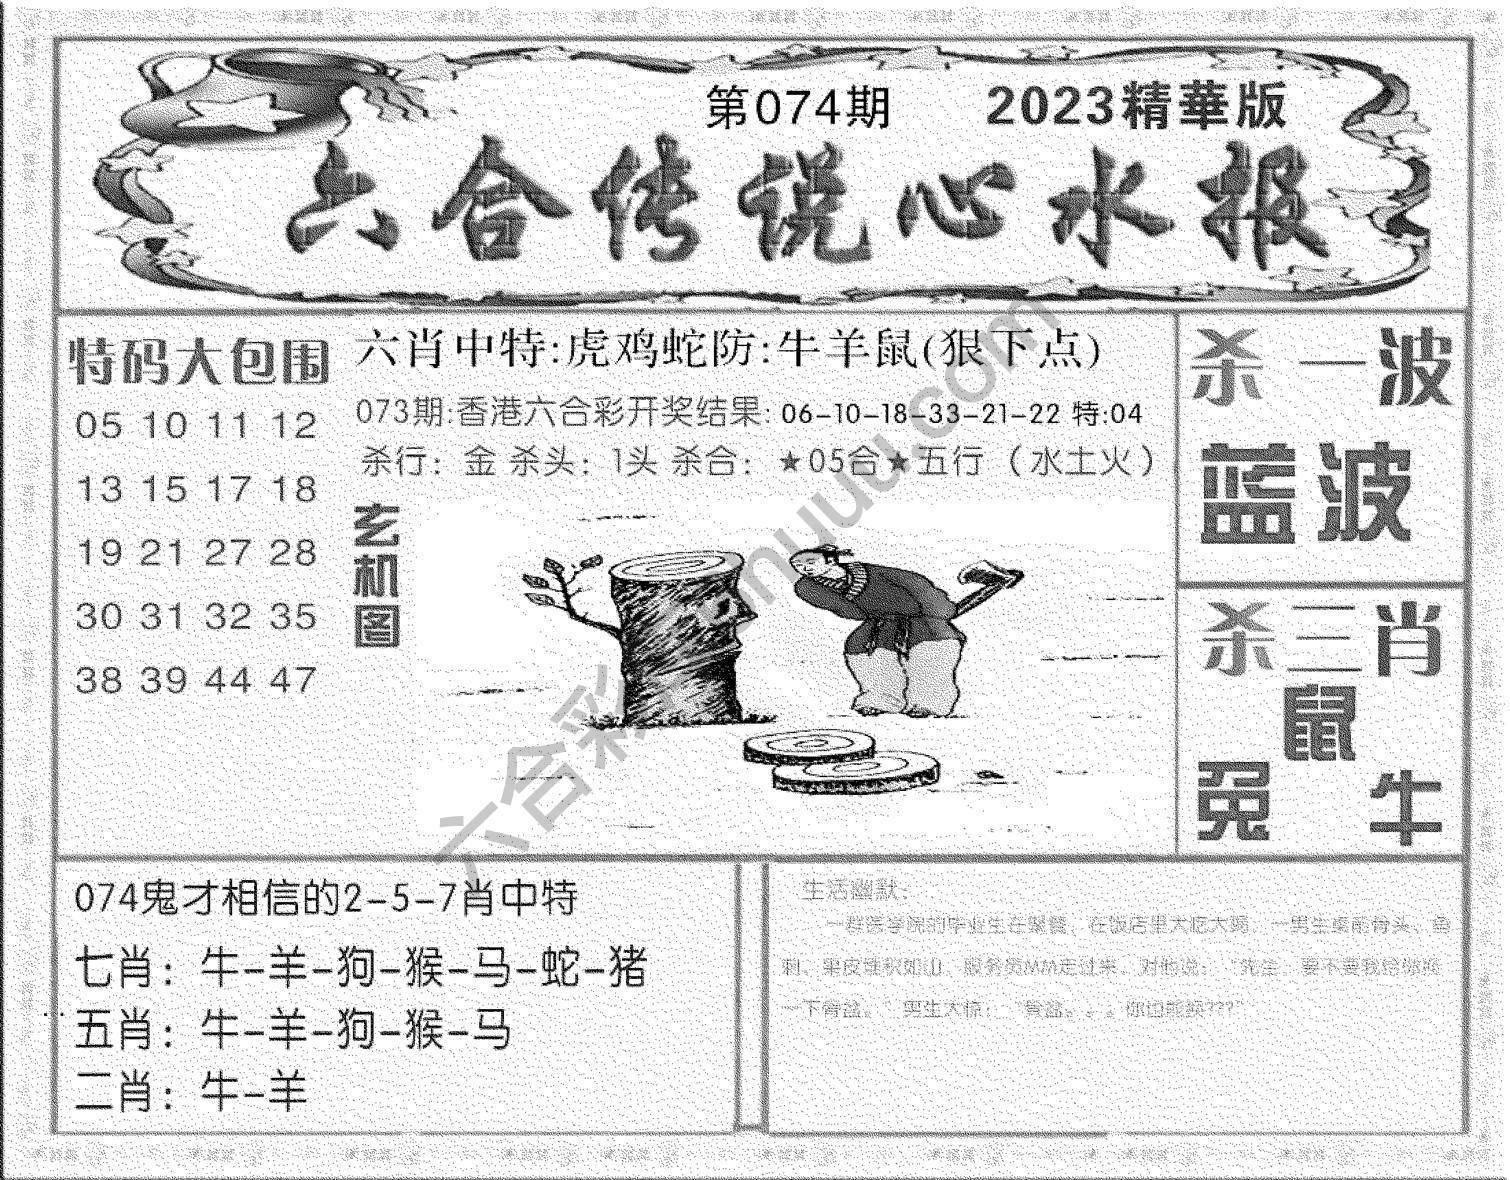 第074期 2023精華版
六合传说心水报
特码大包围
05 10 11 12
13 15 17 18
19 21 27 28
30 31 32 35
38 39 44 47
六肖中特:虎鸡蛇防:牛羊鼠(狠下点)
073期:香港六合彩开奖结果: 06-10-18-33-21-22 特:04
杀行: 金 杀头: 1头 杀合: ★05合★五行 (水土火)
玄机图
杀一波
蓝波
杀三肖
鼠
兔 牛
074鬼才相信的2-5-7肖中特
七肖: 牛-羊-狗-猴-马-蛇-猪
五肖: 牛-羊-狗-猴-马
二肖: 牛-羊
生活幽默:
一群医学院的毕业生在聚餐, 在饭店里大吃大喝, 一男生桌前骨头、鱼
刺、果皮堆积如山, 服务员MM走过来, 对他说: "先生, 要不要我给你换
一下骨盆。" 男生大惊: "骨盆。。。你也能换???"